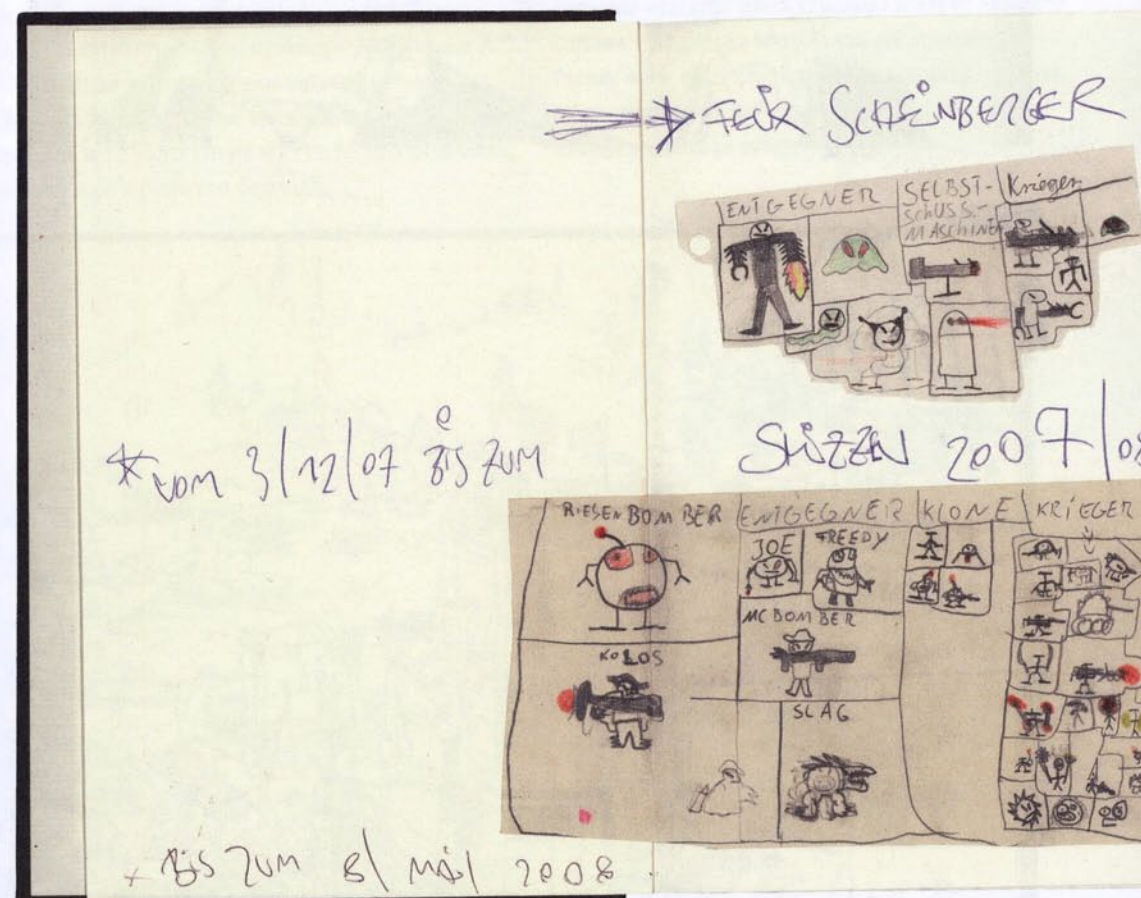 FELIX SCHEINBERGER
ENTGEGNER
SELBST-
SCHUSS-
MASCHINEN
Krieger
SKIZZEN 2007/08
*VOM 3/12/07 BIS ZUM
RIESENBOMBER
ENTGEGNER
KLONE
KRIEGER
JOE
FREEDY
MC BOMBER
KOLOS
SLAG
* BIS ZUM 8/ MAI/ 2008